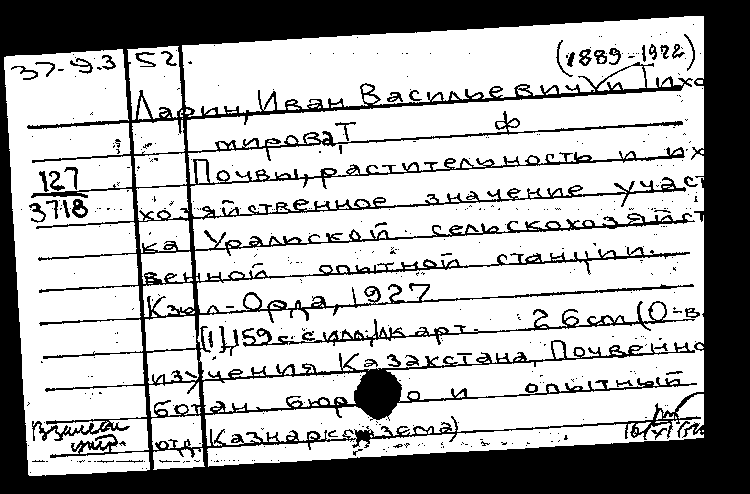 37-9.3 52. (1889-1922)
Ларин, Иван Васильевич и Тихо
мирова, Т ф
127
3718
Почвы, растительность и их
хозяйственное значение учас
ка Уральской сельскохозяйст
венной опытной станции.
Кзыл-Орда, 1927
[1], 159 с. с илл., 1к карт. 26 cm (О-в.
изучения Казакстана, Почвенно
ботан. бюро и опытный
отд. Казнаркозема)